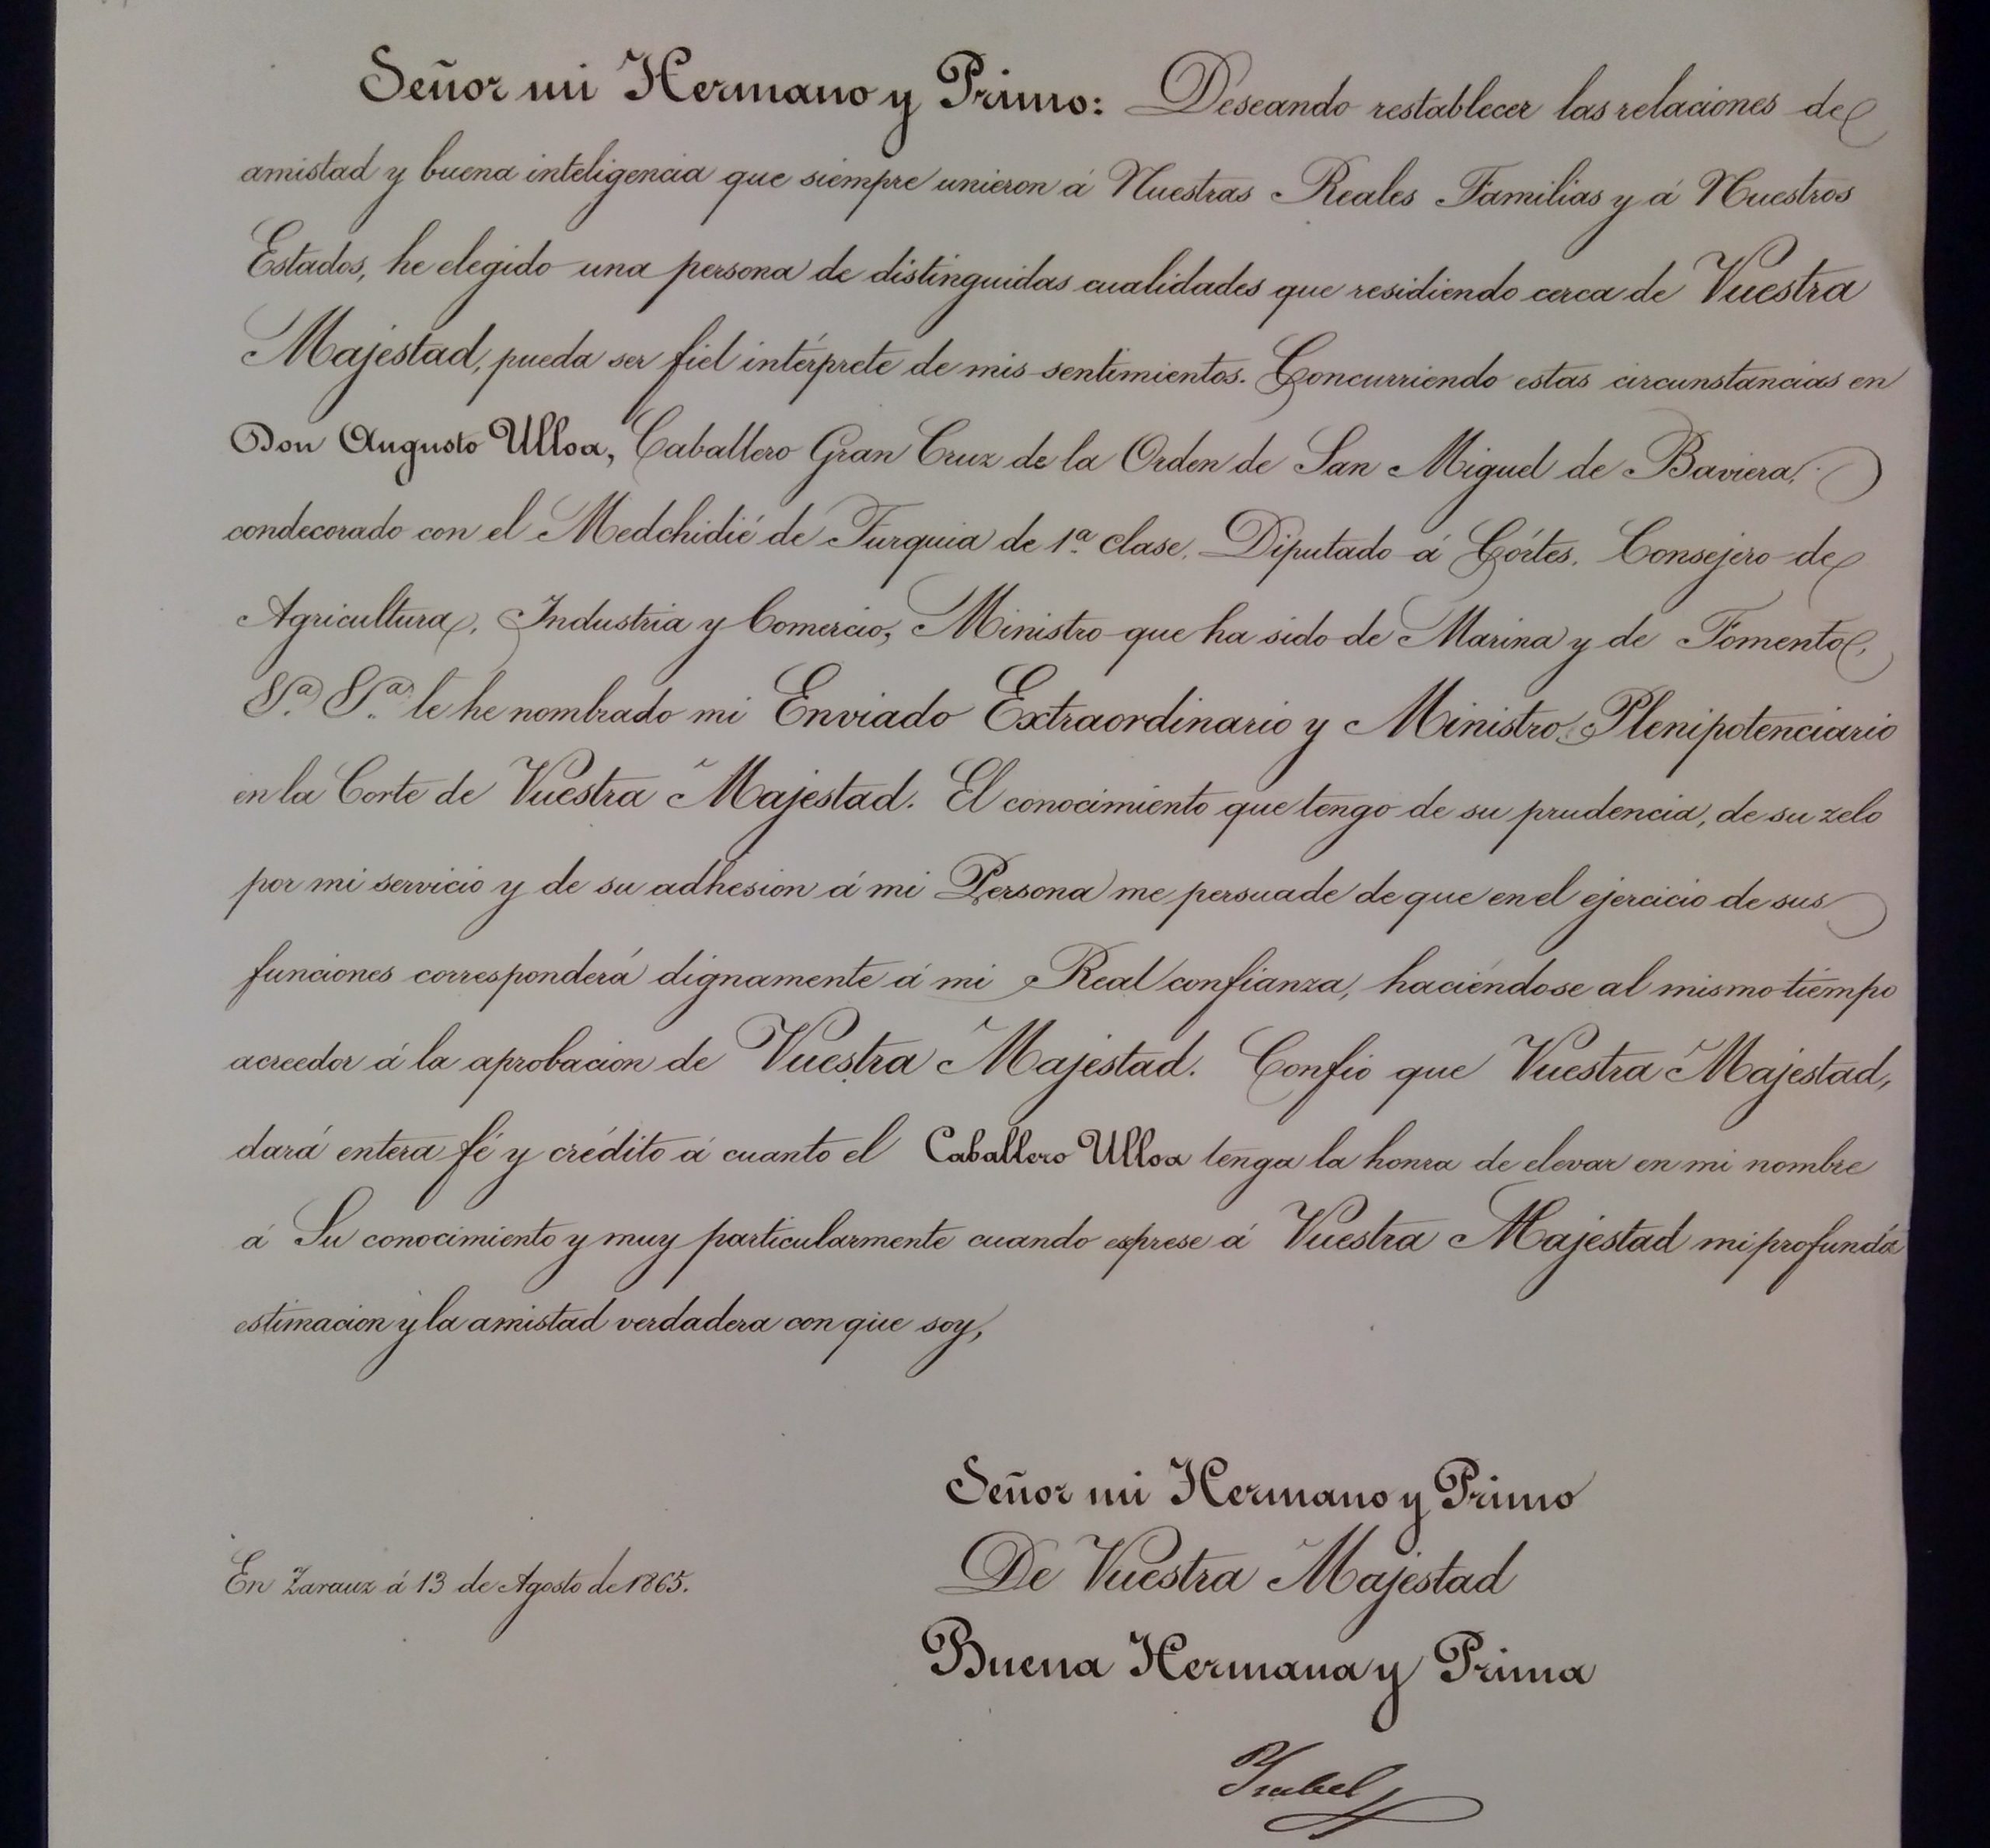 Señor mi Hermano y Primo: Deseando restablecer las relaciones de
amistad y buena inteligencia que siempre unieron á Nuestras Reales Familias y á Nuestros
Estados, he elegido una persona de distinguidas cualidades que residiendo cerca de Vuestra
Majestad, pueda ser fiel intérprete de mis sentimientos. Concurriendo estas circunstancias en
Don Augusto Ulloa, Caballero Gran Cruz de la Orden de San Miguel de Baviera,
condecorado con el Medchidié de Turquia de 1ª clase, Diputado á Córtes, Consejero de
Agricultura, Industria y Comercio, Ministro que ha sido de Marina y de Fomento,
&ª &ª le he nombrado mi Enviado Extraordinario y Ministro Plenipotenciario
en la Corte de Vuestra Majestad. El conocimiento que tengo de su prudencia, de su zelo
por mi servicio y de su adhesion á mi Persona me persuade de que en el ejercicio de sus
funciones corresponderá dignamente á mi Real confianza, haciéndose al mismo tiempo
acreedor á la aprobacion de Vuestra Majestad. Confio que Vuestra Majestad,
dará entera fé y crédito á cuanto el Caballero Ulloa tenga la honra de elevar en mi nombre
á Su conocimiento y muy particularmente cuando esprese á Vuestra Majestad mi profunda
estimacion y la amistad verdadera con que soy,
Señor mi Hermano y Primo
De Vuestra Majestad
En Zarauz á 13 de Agosto de 1865.
Buena Hermana y Prima
Ysabel